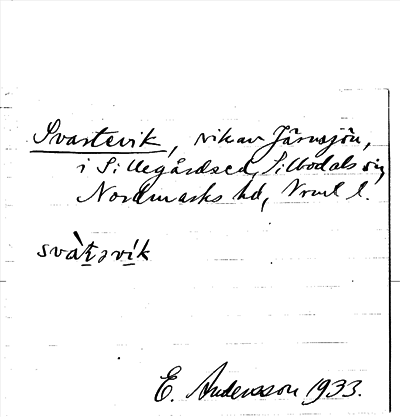 Svartevik, vik av Järnsjön,
i Sillegårdsed, Silbodals sn,
Nordmarks hd, Vrml l.
svàṯəvi̱k
E. Andersson 1933.